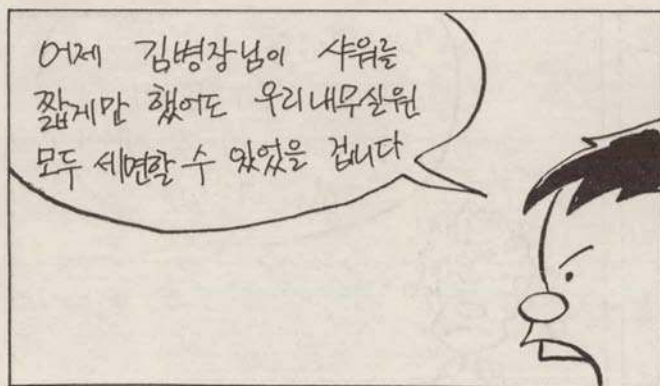 어제 김병장님이 샤워를
짧게만 했어도 우리내무실원
모두 세면할 수 있었을 겁니다